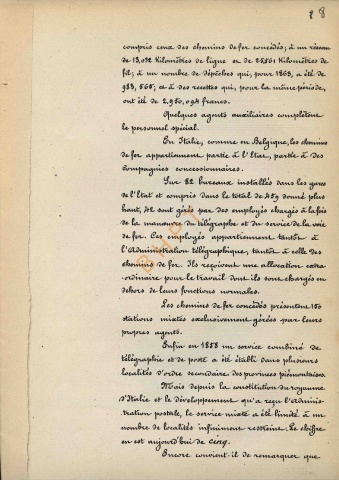 18
compris ceux des chemins de fer concédés; à un réseau
de 13,092 Kilomètres de ligne et de 25861 Kilomètres de
fil; à un nombre de dépêches qui, pour 1863, a été de
983,868; et à des recettes qui, pour la même période,
ont été de 2,980,094 francs.
Quelques agents auxiliaires complètent
le personnel spécial.
En Italie, comme en Belgique, les chemins
de fer appartiennent partie à l'Etat, partie à des
compagnies concessionnaires.
Sur 82 bureaux installés dans les gares
de l'Etat et compris dans le total de 459 donné plus
haut, 41 sont gérés par des employés chargés à la fois
de la manœuvre du télégraphe et du service de la voie
de fer. Ces employés appartiennent tantôt à
l'Administration télégraphique, tantôt à celle des
chemins de fer. Ils reçoivent une allocation extra-
ordinaire pour le travail dont ils sont chargés en
dehors de leurs fonctions normales.
Les chemins de fer concédés présentent 150
stations mixtes exclusivement gérées par leurs
propres agents.
Enfin en 1858 un service combiné de
télégraphie et de poste a été établi dans plusieurs
localités d'ordre secondaire des provinces piémontaises.
Mais depuis la constitution du royaume
d'Italie et le développement qu'a reçu l'adminis-
tration postale, le service mixte a été limité à un
nombre de localités infiniment restreint. Le chiffre
en est aujourd'hui de cinq.
Encore convient-il de remarquer que